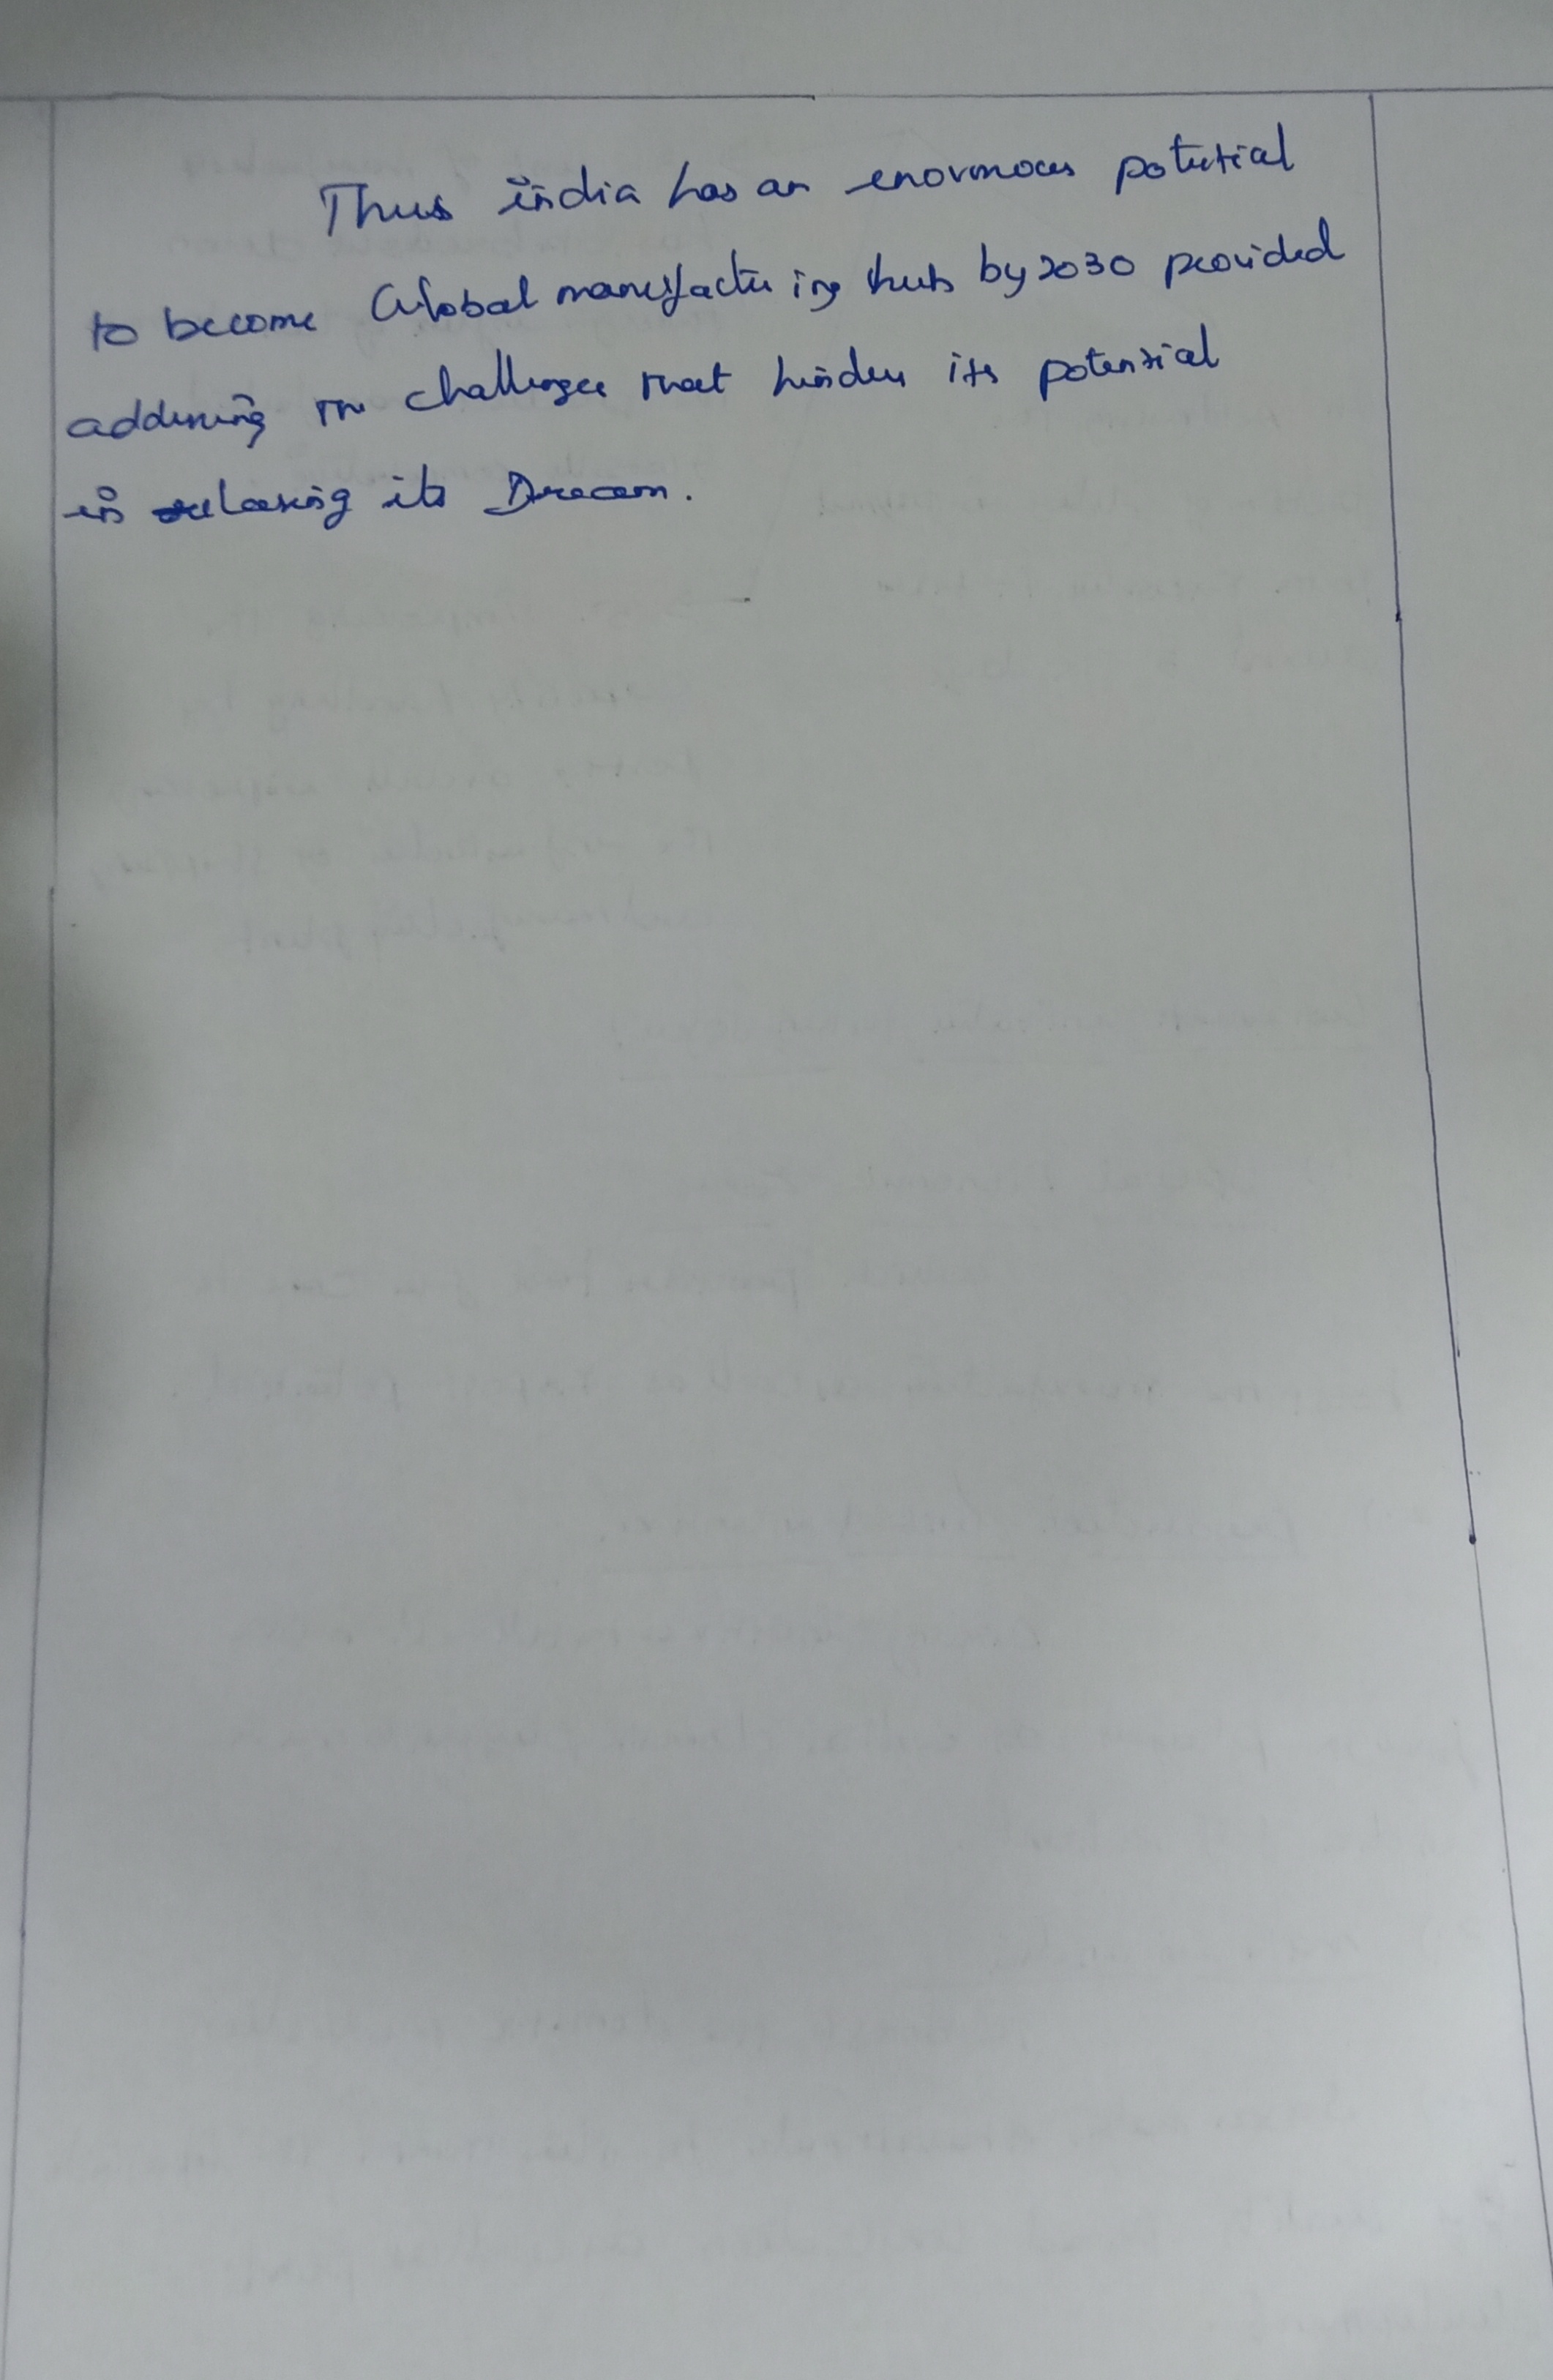 Thus india has an enormous potential
to become Global manufacturing hub by 2030 provided
the challenges that hinder its potential
in its Dream.